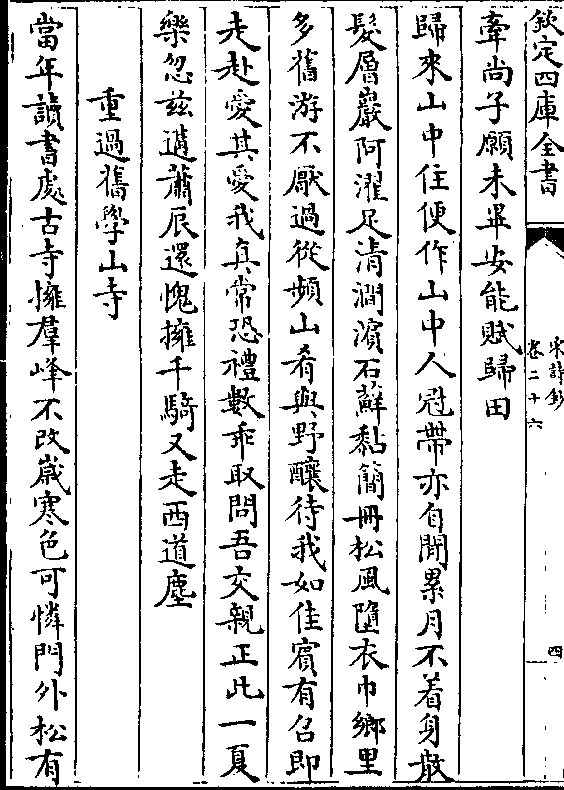 欽定四庫全書
宋詩鈔
卷二十六
四
牽尚子願未畢安能賦歸田
歸來山中住便作山中人冠帶亦自閒累月不着身散
髮層巖阿濯足清澗濱石蘚黏簡冊松風墮衣巾鄉里
多舊游不厭過從頻山肴與野釀待我如佳賓有召即
走赴愛其愛我真常恐禮數乖取問吾交親正此一夏
樂忽兹遘蕭辰還愧擁千騎又走西道塵
重過舊學山寺
當年讀書處古寺擁羣峰不改嵗寒色可憐門外松有